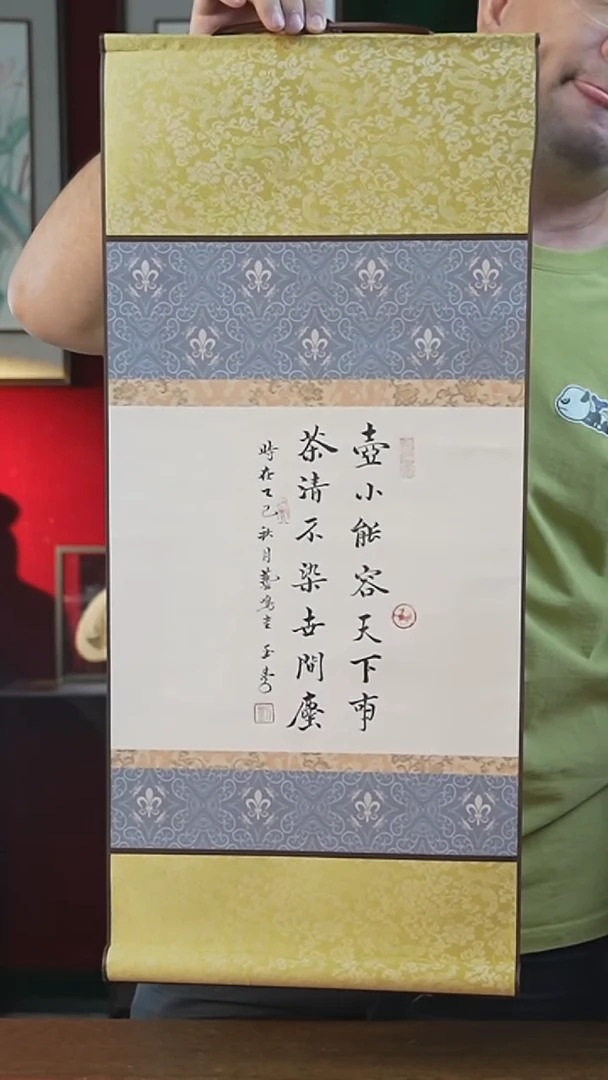 壺小能容天下事
茶清不染世間塵
時在乙巳秋月藝鳴書玉秀